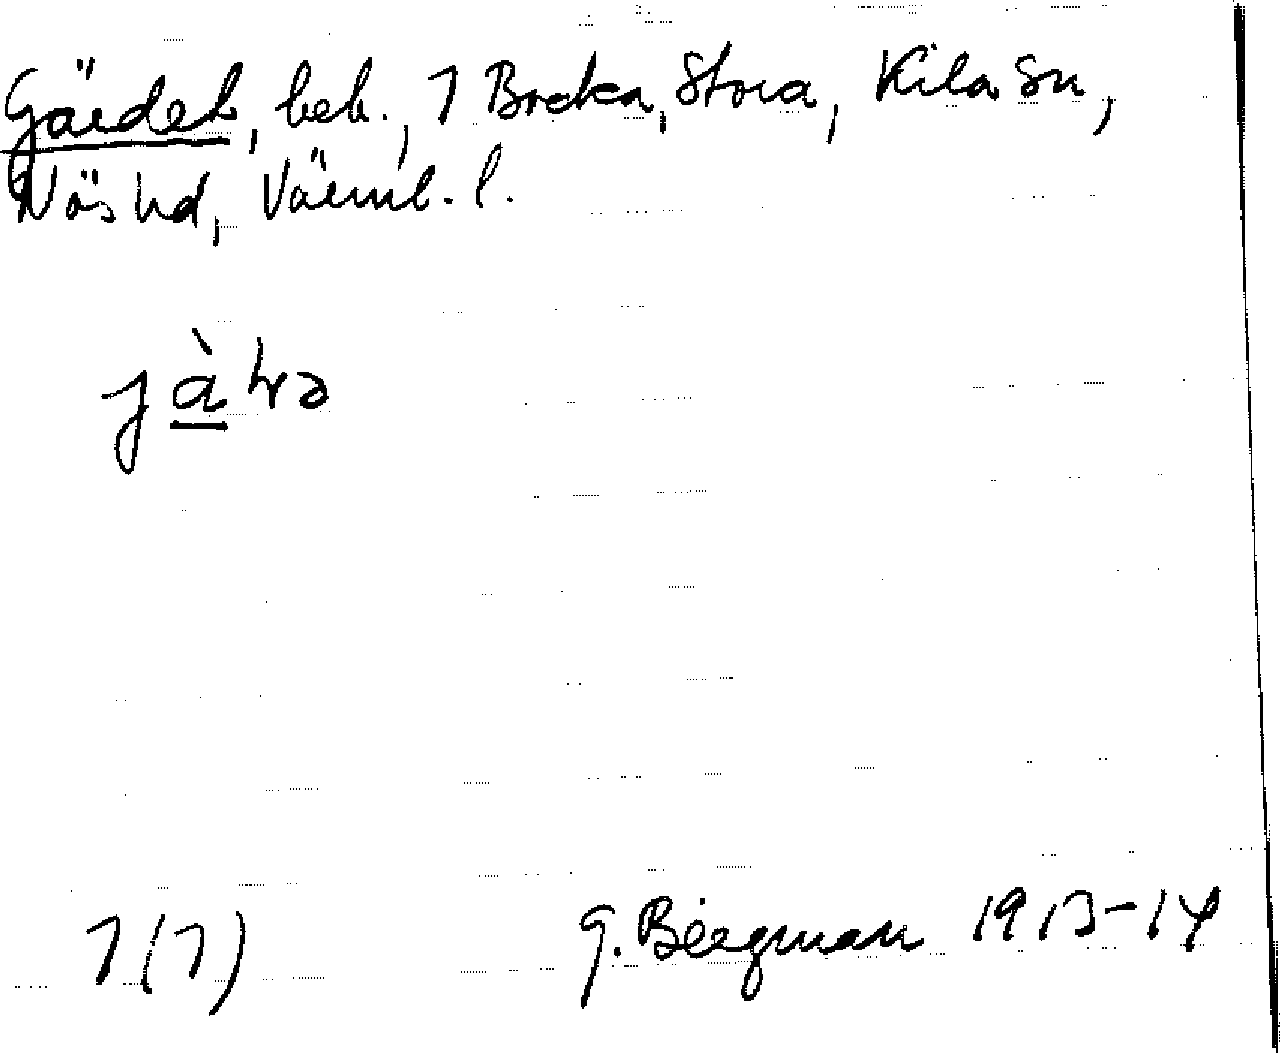 Gärdet, beb., 1 Breka, Stora, Kila sn,
Näs hd, Värml. l.
G. Bergman 1913-14